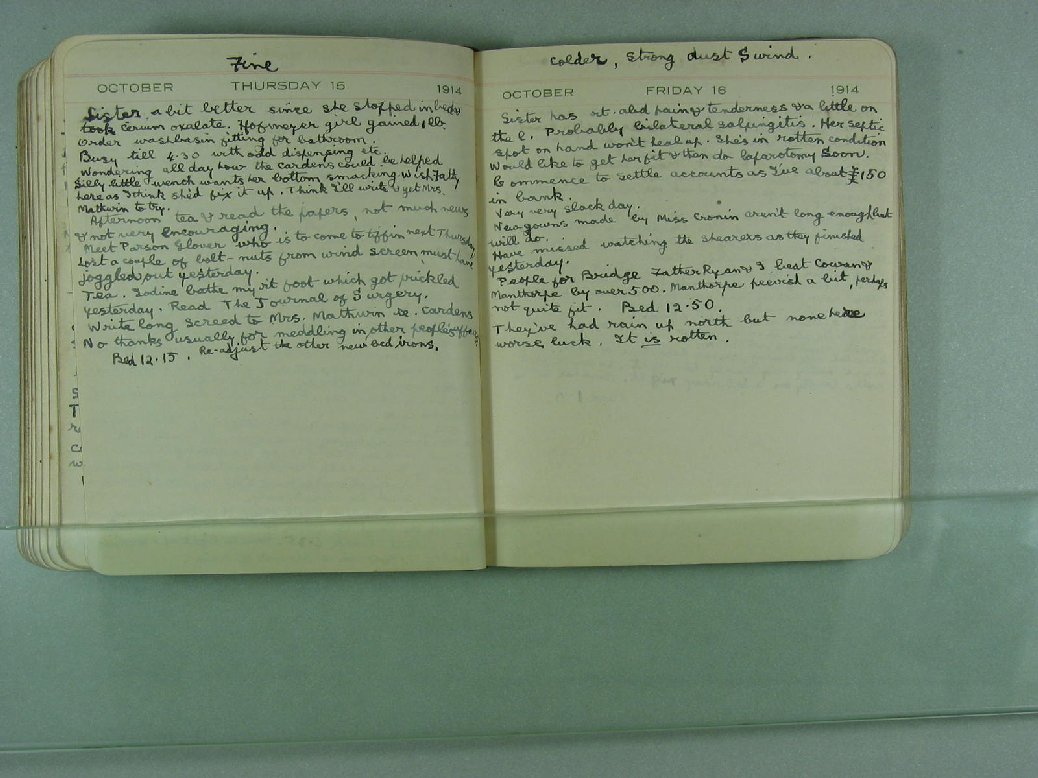 Fine
OCTOBER THURSDAY 15 1914
Sister a bit better since she stopped in bed &
took cerium oxalate. Hofmeyer girl gained 1 lb.
Order washbasin fitting for bathroom.
Busy till 4.30 with odd dispensing etc.
Wondering all day how the Cardens could be helped
Silly little wench wants her bottom smacking Wish Fatty
here as I think she'd fix it up. Think I'll write & get Mrs.
Mathwin to try.
Afternoon tea & read the papers, not much news
& not very encouraging.
Meet Parson Glover who is to come to tiffin next Thursday
Lost a couple of bolt-nuts from wind screen must have
joggled out yesterday.
Tea. Iodine bathe my rt foot which got prickled
yesterday. Read The Journal of Surgery.
Write long screed to Mrs. Mathwin re. Cardens
No thanks usually for meddling in other people's
Bed 12.15. Re-adjust the other new bed irons.
colder, strong dust S wind.
OCTOBER FRIDAY 16 1914
Sister has rt. abd pain & tenderness & a little on
the l. Probably bilateral salpingitis. Her septic
spot on hand won't heal up. She's in rotten condition
Would like to get her fit & then do laparotomy soon.
Commence to settle accounts as I've about £150
in bank.
Very very slack day.
New gowns made by Miss Cronin aren't long enough but
will do.
Have missed watching the shearers as they finished
yesterday.
People for Bridge Father Ryan & I beat Cowan &
Manthorpe by over 500. Manthorpe peevish a bit, perhaps
not quite fit. Bed 12.50.
They've had rain up north but none here
worse luck. It is rotten.